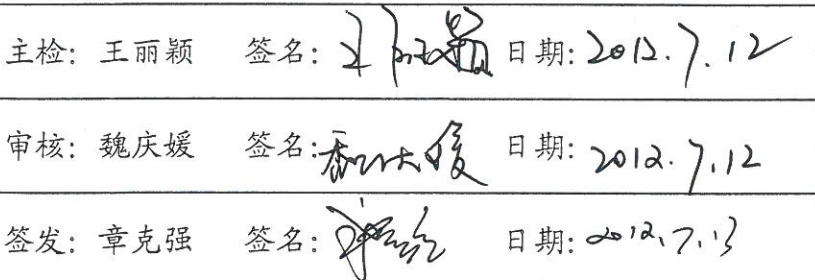 主检：王丽颖 签名：王丽颖 日期：2012.7.12
审核：魏庆媛 签名： 日期：2012.7.12
签发：章克强 签名： 日期：2012.7.13